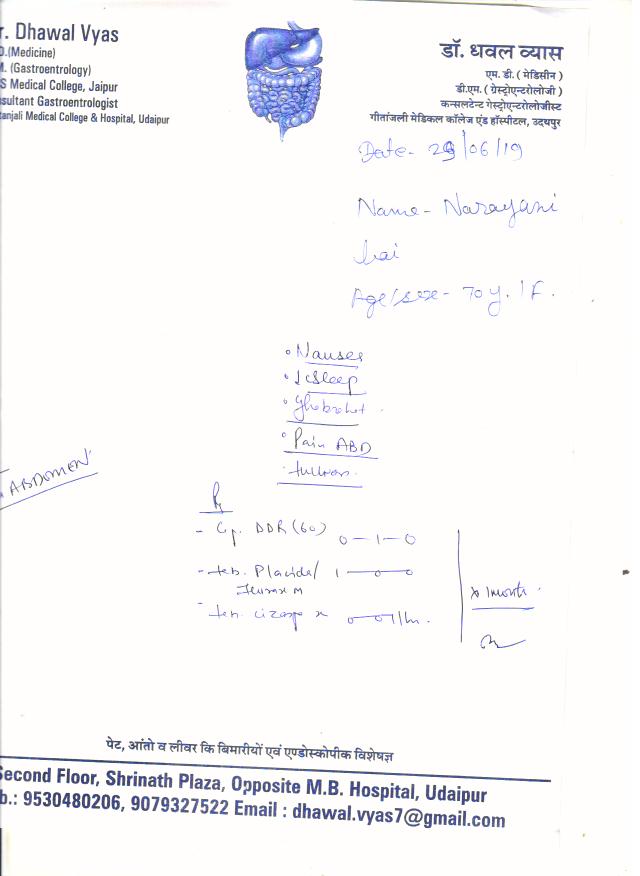 r. Dhawal Vyas
D.(Medicine)
M. (Gastroentrology)
S Medical College, Jaipur
sultant Gastroentrologist
anjali Medical College & Hospital, Udaipur
डॉ. धवल व्यास
एम. डी. ( मेडिसीन )
डी.एम. ( गेस्ट्रोएन्टरोलोजी )
कन्सलटेन्ट गेस्ट्रोएन्टरोलोजीस्ट
गीतांजली मेडिकल कॉलेज एंड हॉस्पीटल, उदयपुर
Date- 29/06/19
Name- Narayani
bai
Age/sex- 70 y. / F.
Nausea
↓ Sleep
Ghabrahat
Pain ABD
ABDOMEN
Rx
- Cap. DDR (60) 0-1-0
- tab. Placida/ 1-0-0
M
- tab.
x 1 month
पेट, आंतो व लीवर कि बिमारीयों एवं एण्डोस्कोपीक विशेषज्ञ
Second Floor, Shrinath Plaza, Opposite M.B. Hospital, Udaipur
b.: 9530480206, 9079327522 Email : dhawal.vyas7@gmail.com